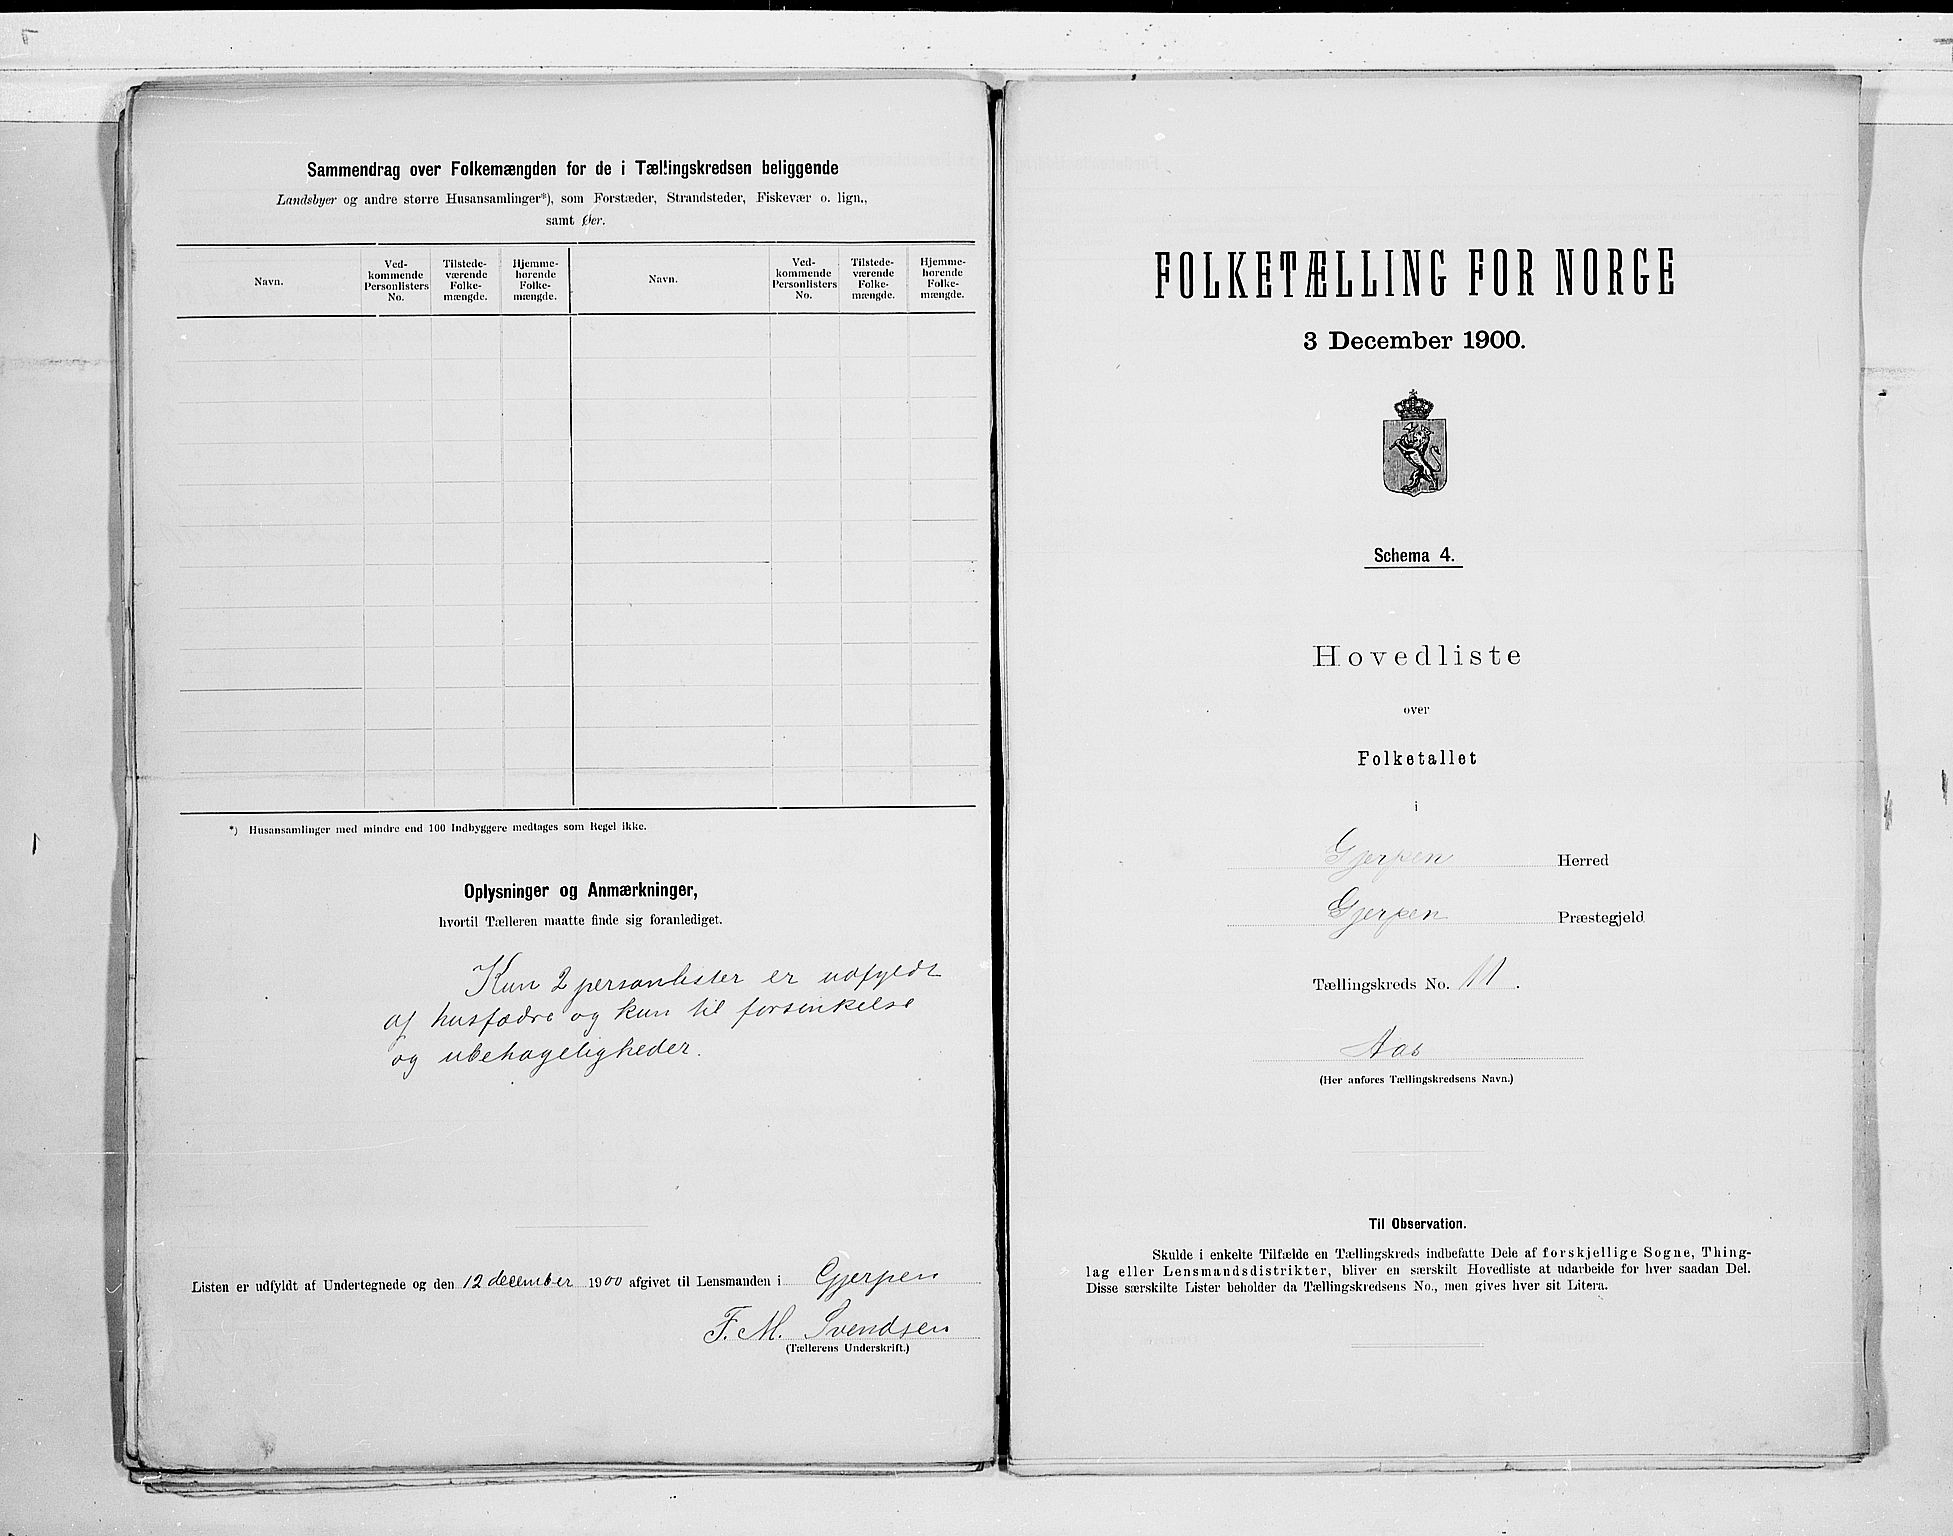 Sammendrag over Folkemængden for de i Tællingskredsen beliggende
Landsbyer og andre større Husansamlinger*), som Forstæder, Strandsteder, Fiskevær o. lign.,
samt Øer.
Navn.
Ved-
kommende
Personlisters
No.
Tilstede-
værende
Folke-
mængde.
Hjemme-
hørende
Folke-
mængde.
Navn.
Ved-
kommende
Personlisters
No.
Tilstede-
værende
Folke-
mængde.
Hjemme-
hørende
Folke-
mængde.
*) Husansamlinger med mindre end 100 Indbyggere medtages som Regel ikke.
Oplysninger og Anmærkninger,
hvortil Tælleren maatte finde sig foranlediget.
Kun 2 personlister er udfyldt
af husfædre og kun til forsinkelse
og ubehageligheder.
Listen er udfyldt af Undertegnede og den 12 december 1900 afgivet til Lensmanden i Gjerpen
F. M. Svendsen
(Tællerens Underskrift.)
FOLKETÆLLING FOR NORGE
3 December 1900.
Schema 4.
Hovedliste
over
Folketallet
i
Gjerpen Herred
Gjerpen Præstegjeld
Tællingskreds No. 11.
Aas
(Her anføres Tællingskredsens Navn.)
Til Observation.
Skulde i enkelte Tilfælde en Tællingskreds indbefatte Dele af forskjellige Sogne, Thing-
lag eller Lensmandsdistrikter, bliver en særskilt Hovedliste at udarbeide for hver saadan Del.
Disse særskilte Lister beholder da Tællingskredsens No., men gives hver sit Litera.